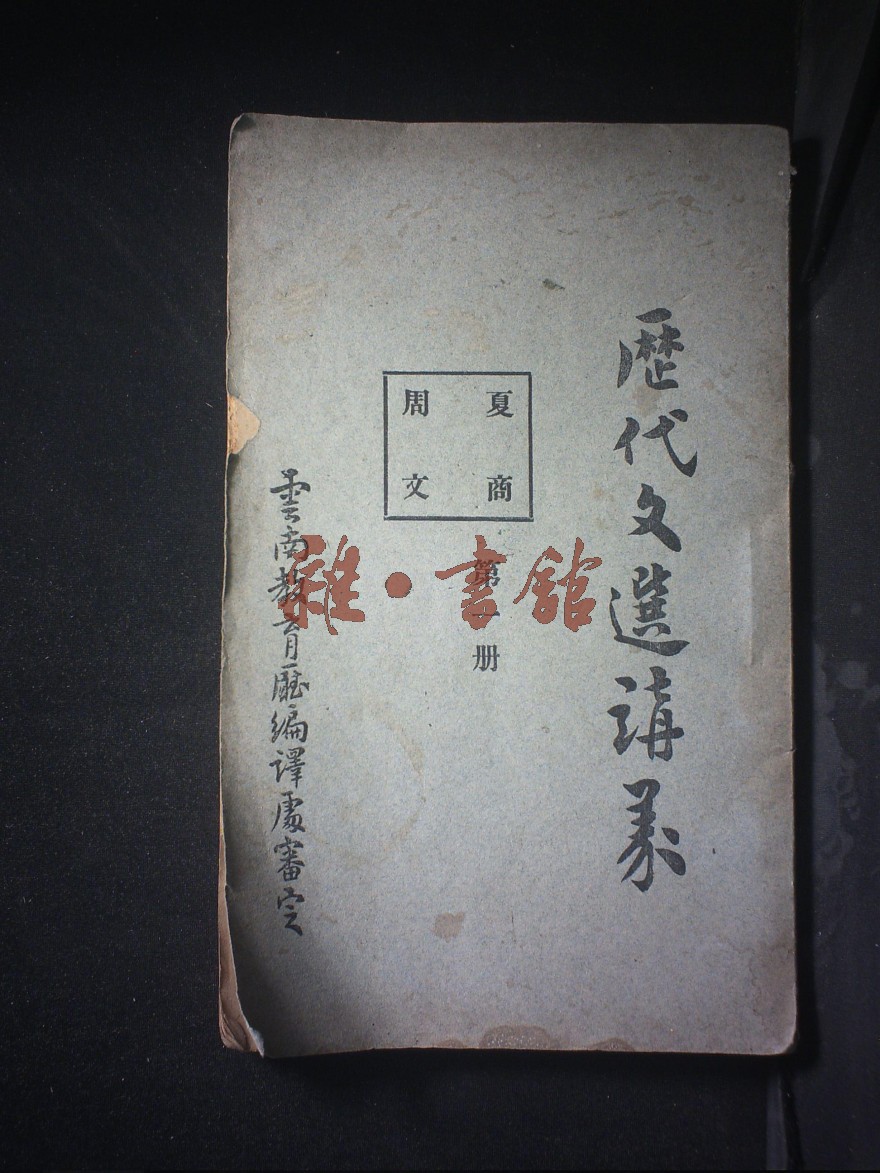 歷代文選講義
夏商
周文
第一册
雲南教育廳編譯處審定
雜·書館